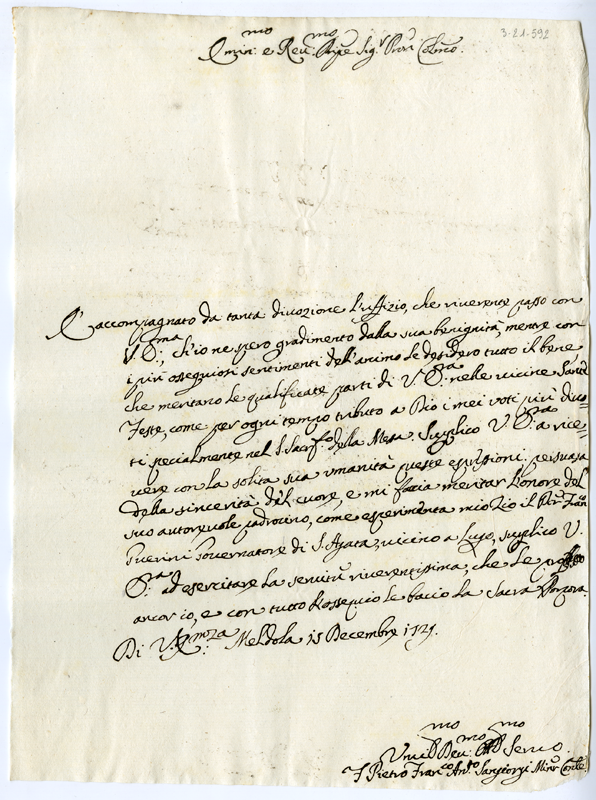 3-21-592
Emin: mo e Reu: mo Sig.r Pron Colmo.
È accompagnato da tanta diuozione l'uffizio, che riuerente passo con
V. Em.a, ch'io ne spero gradimento dalla sua benignità, mentre con
i più ossequiosi sentimenti dell'animo le desidero tutto il bene
che meritano le qualificate parti di V. Em.a nelle uicine Santé
Feste, come per ogni tempo tributo a Dio i miei voti più diuo=
ti specialmente nel S. Sacrf.o della Messa. Supplico V. Em.a a rice=
uere con la solita sua umanità queste espressioni persuasa
della sincerità del cuore, e mi faccia meritar l'onore del
suo autoreuole padrocino, come esperimenta mio Zio il Fran
Guerini Gouernatore di S. Agata, uicino a Lugo, supplico V.
Em.a ad esercitare la seruitù riuerentissima, che le
ancor io, e con tutto l'ossequio le bacio la Sacra Porpora.
Di V. Em.za Meldola 15 Decembre 1721.
Umil: mo Deu: mo mo Seruo.
F Pietro Fran.co Ant.o Sangiorgi Minr Conle.